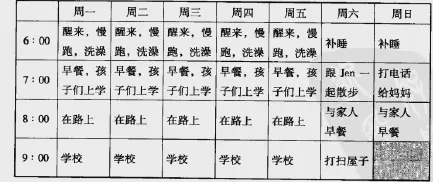 周一 周二 周三 周四 周五 周六 周日
6:00 醒来，慢跑，洗澡 醒来，慢跑，洗澡 醒来，慢跑，洗澡 醒来，慢跑，洗澡 醒来，慢跑，洗澡 补睡 补睡
7:00 早餐，孩子们上学 早餐，孩子们上学 早餐，孩子们上学 早餐，孩子们上学 早餐，孩子们上学 跟 Jen 一起散步 打电话给妈妈
8:00 在路上 在路上 在路上 在路上 在路上 与家人早餐 与家人早餐
9:00 学校 学校 学校 学校 学校 打扫屋子